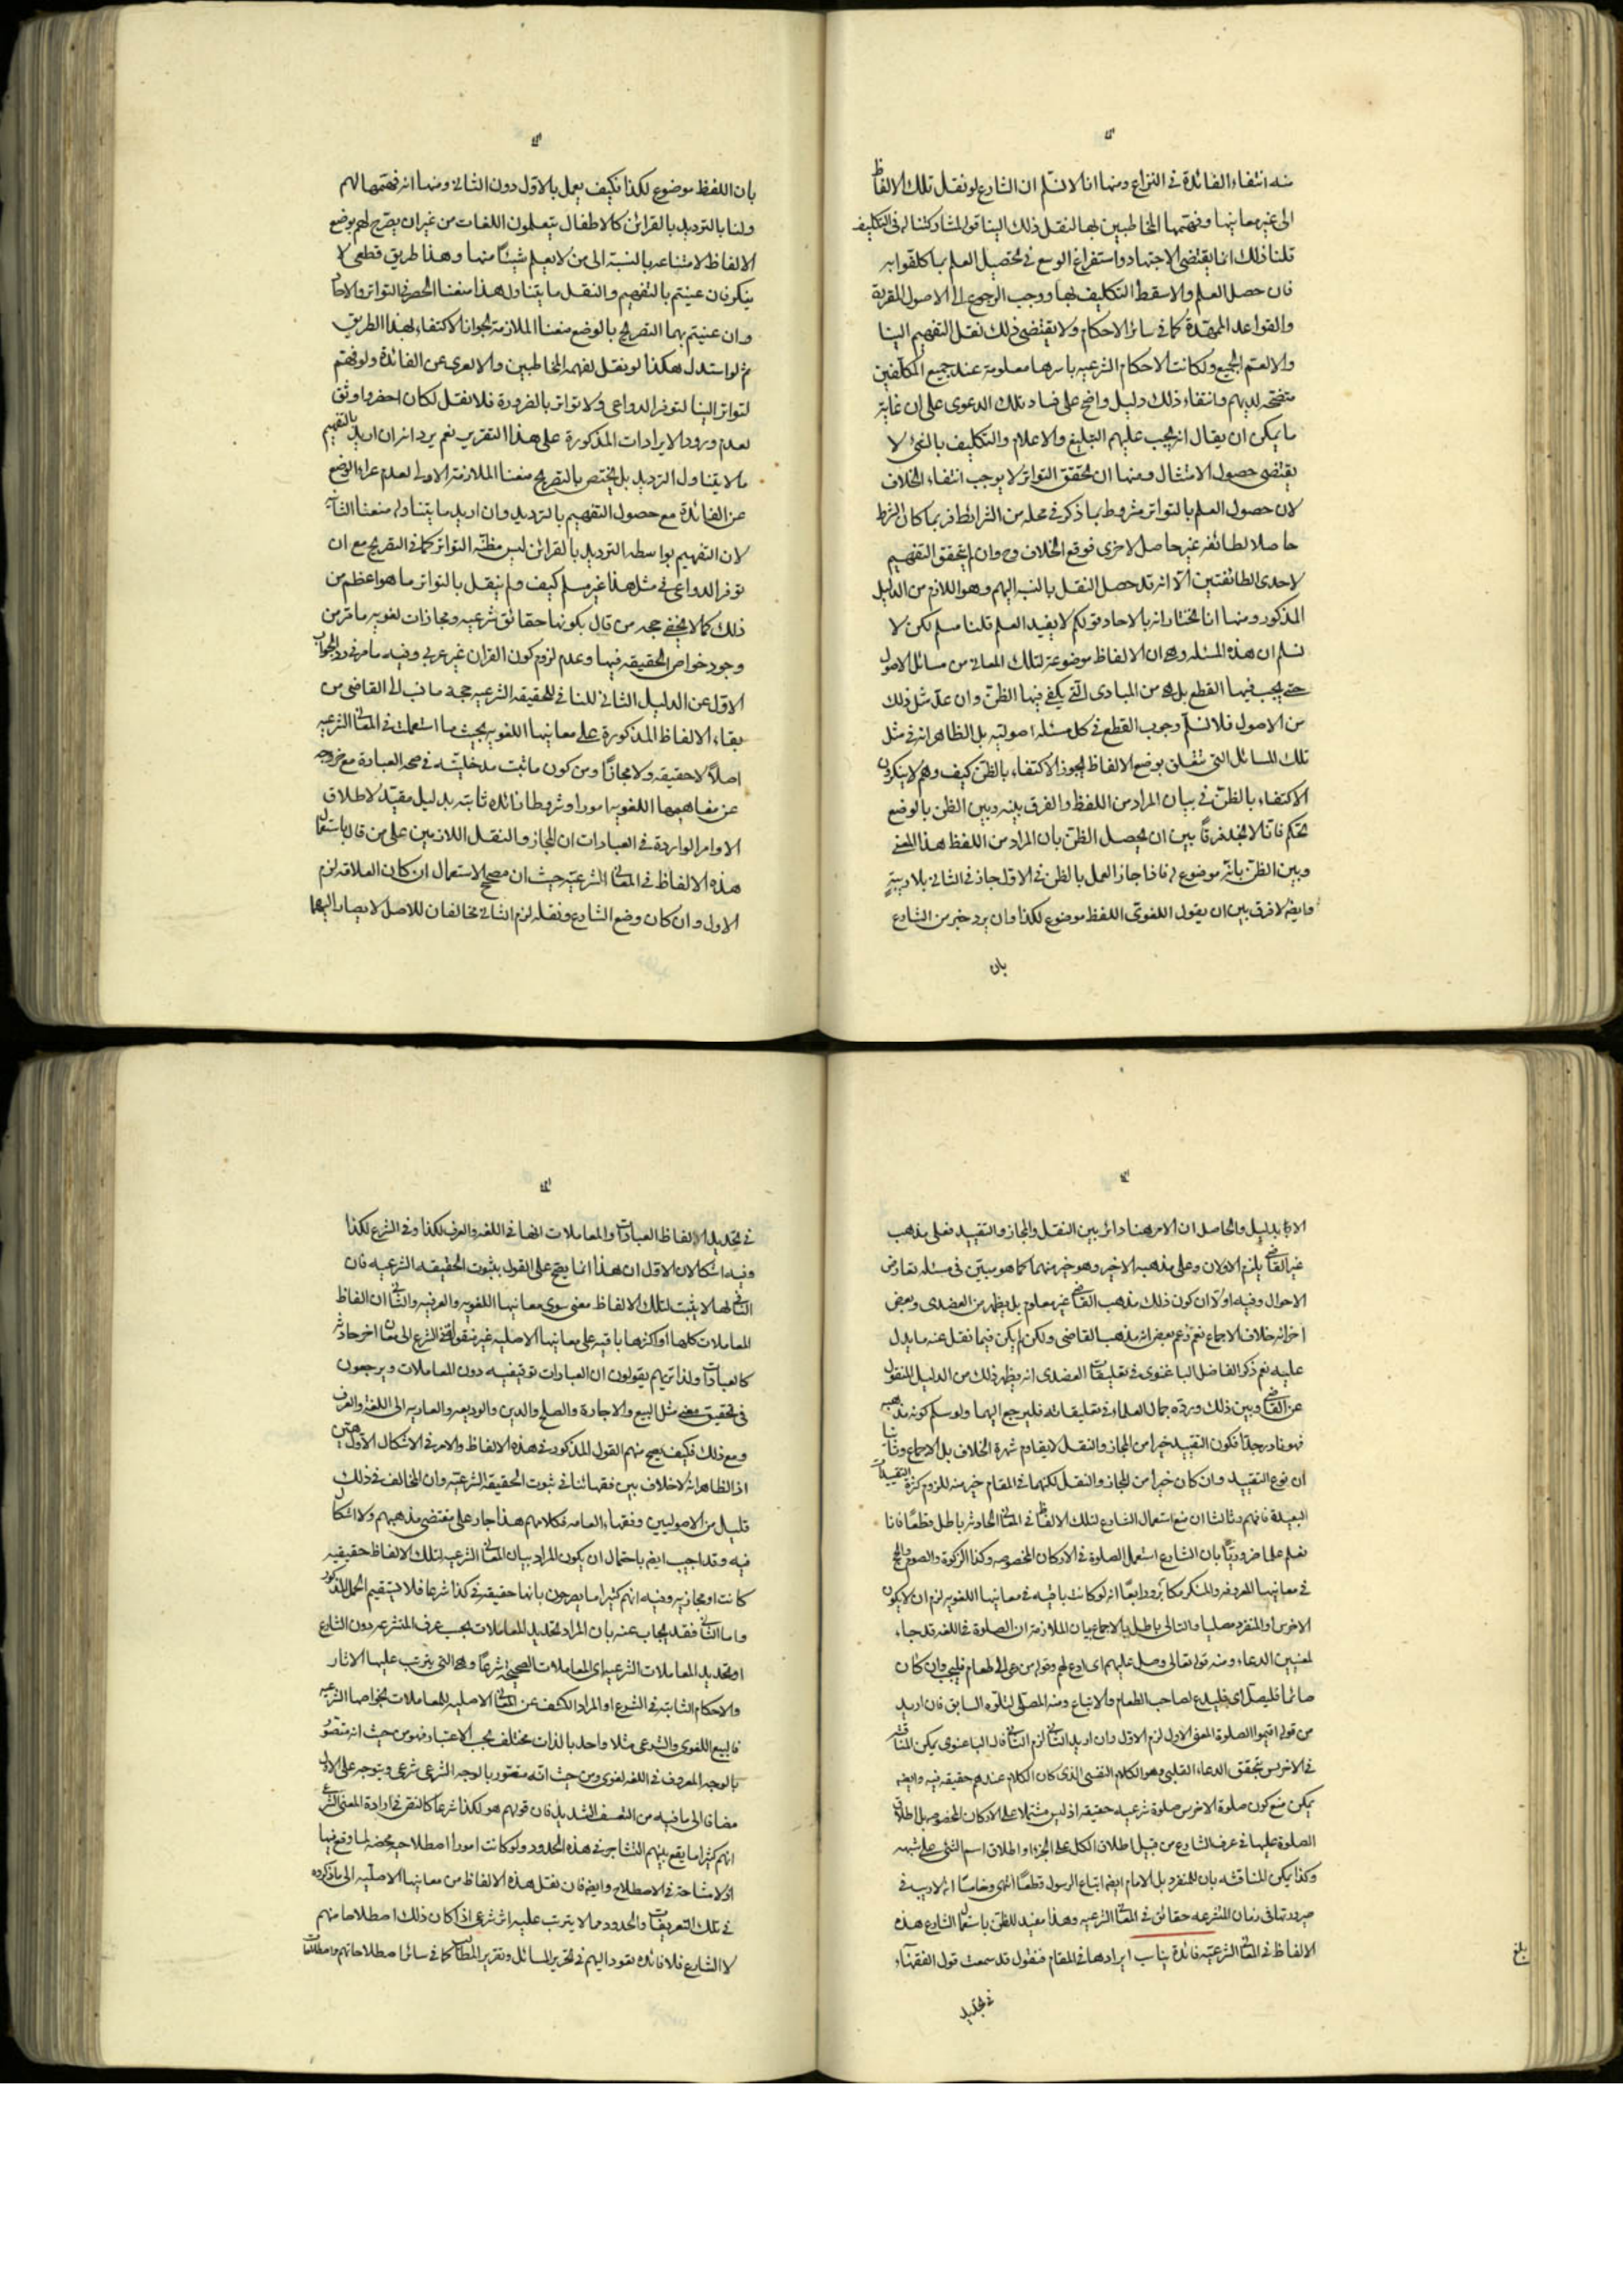 منه انتفاء الفائدة فى النزاع ومنها انا لا نسلم ان الشارع لو نقل تلك الالفاظ
الى غير معانيها وفهمها المخاطبين بها لنقل ذلك الينا قوله لمشاركتنا لهم فى التكليف
قلنا ذلك انما يقتضى الاجتهاد واستفراغ الوسع فى تحصيل العلم بما كلفوا به
فان حصل العلم والا سقط التكليف بها ووجب الرجوع الى الاصول المقررة
والقواعد الممهدة كما فى سائر الاحكام ولا يقتضى ذلك نقل التفهيم الينا
والا لعم الجميع ولكانت الاحكام الشرعيه باسرها معلومة عند جميع المكلفين
متضحة لديهم وانتفاء ذلك دليل واضح على فساد تلك الدعوى على ان غاية
ما يمكن ان يقال انه يجب عليهم التبليغ والاعلام والتكليف بالشئ لا
يقتضى حصول الامتثال ومنها ان تحقق التواتر لا يوجب انتفاء الخلاف
لان حصول العلم بالتواتر مشروط بما ذكر فى محله من الشرائط فربما كان الشرط
حاصلا لطائفه غير حاصل لاخرى فوقع الخلاف وح وان لم يتحقق التفهيم
لاحدى الطائفتين الا انه قد حصل النقل بالنسبه اليهم وهو اللازم من الدليل
المذكور ومنها انا نختار انه بالاحاد قولكم لا يفيد العلم قلنا مسلم لكن لا
نسلم ان هذه المسئله وهى ان الالفاظ موضوعة لتلك المعانى من مسائل الاصول
حتى يجب فيها القطع بل هى من المبادى التى يكفى فيها الظن وان عد مثل ذلك
من الاصول فلا نسلم وجوب القطع فى كل مسئله اصوليه بل الظاهر انه فى مثل
تلك المسائل التى تتعلق بوضع الالفاظ يجوز الاكتفاء بالظن كيف وهم لا ينكرون
الاكتفاء بالظن فى بيان المراد من اللفظ والفرق بينه وبين الظن بالوضع
تحكم فانا لا نجد فرقا بين ان يحصل الظن بان المراد من اللفظ هذا المعنى
وبين الظن بانه موضوع له فاذا جاز العمل بالظن فى الاول جاز فى الثانى بلا ريبة
وايضا لا فرق بين ان يقول اللغوى اللفظ موضوع لكذا وان يرد خبر من الشارع
بان
بان اللفظ موضوع لكذا فكيف يعمل بالاول دون الثانى ومنها انه فهمها لهم
ولنا بالترديد بالقرائن كالاطفال يتعلمون اللغات من غير ان يصرح لهم بوضع
الالفاظ لامتناعه بالنسبة الى من لا يعلم شيئا منها وهذا طريق قطعى لا
ينكر فان عنيتم بالتفهيم والنقل ما يتناول هذا منعنا الحصر فى التواتر والاحاد
وان عنيتم بهما التصريح بالوضع منعنا الملازمة لجواز الاكتفاء بهذا الطريق
ثم لو استدل هكذا لو نقل لفهمه المخاطبين والا لعرى عن الفائدة ولو فهم
لتواتر الينا لتوفر الدواعى ولا تواتر بالضرورة فلا نقل لكان اخصر واوثق
لعدم ورود الايرادات المذكورة على هذا التقرير نعم يرد انه ان اريد بالتفهيم
ما لا يتناول الترديد بل يختص بالتصريح منعنا الملازمة الاولى لعدم عراء الوضع
عن الفائدة مع حصول التفهيم بالترديد وان اريد ما يتناوله منعنا الثانية
لان التفهيم بواسطه الترديد بالقرائن ليس مظنه التواتر كما فى التصريح مع ان
توفر الدواعى فى مثل هذا غير مسلم كيف ولم ينقل بالتواتر ما هو اعظم من
ذلك كما لا يخفى حجه من قال بكونها حقائق شرعيه ومجازات لغويه ما مر من
وجود خواص الحقيقه فيها وعدم لزوم كون القران غير عربى وفيه ما مر فى رد الجواب
الاول عن الدليل الثانى للنافى للحقيقه الشرعيه حجة ما نسب الى القاضى من
بقاء الالفاظ المذكورة على معانيها اللغويه بحيث ما استعملت فى المعانى الشرعيه
اصلا لا حقيقه ولا مجازا ومن كون ما ثبت مدخليته فى صحه العبادة مع خروجه
عن مفاهيمها اللغويه امورا وشروطا زائدة ثابته بدليل مقيد لاطلاق
الاوامر الواردة فى العبادات ان المجاز والنقل اللازمين على من قال باستعمال
هذه الالفاظ فى المعانى الشرعيه حيث ان مصحح الاستعمال ان كان العلاقه لزم
الاول وان كان وضع الشارع ونقله لزم الثانى مخالفان للاصل لا يصار اليهما
الا بدليل والحاصل ان الامر هنا دائر بين النقل والمجاز والتقييد فعلى مذهب
غير القاضى يلزم الاولان وعلى مذهبه الاخير وهو خير منهما كما هو مبين فى مسئله تعارض
الاحوال وفيه اولا ان كون ذلك مذهب القاضى غير معلوم بل يظهر من العضدى وبعض
اخر انه خلاف الاجماع نعم زعم بعض انه مذهب القاضى ولكن لم يكن فيما نقل عنه ما يدل
عليه نعم ذكر الفاضل الباغنوى فى تعليقات العضدى انه يظهر ذلك من الدليل المنقول
عن القاضى وبين ذلك ورده جمال العلماء فى تعليقاته فليرجع اليهما ولو سلم كونه مذهبه
فهو نادر جدا فكون التقييد خيرا من المجاز والنقل لا يقاوم شهرة الخلاف بل الاجماع وثانيا
ان نوع التقييد وان كان خيرا من المجاز والنقل لكنهما فى المقام خير منه للزوم كثرة التقييدات
البعيدة فافهم وثالثا ان منع استعمال الشارع لتلك الالفاظ فى المعانى الحادثه باطل قطعا فانا
نعلم علما ضروريا بان الشارع استعمل الصلوة فى الاركان المخصوصه وكذا الزكوة والصوم والحج
فى معانيها المعروفه والمنكر مكابر ورابعا انه لو كانت باقيه فى معانيها اللغويه لزم ان لا يكون
الاخرس والمنفرد مصليا والتالى باطل بالاجماع بيان الملازمة ان الصلوة فى اللغه قد جاء
لمعنيين الدعاء ومنه قوله تعالى وصل عليهم اى ادع لهم وقوله من دعى الى طعام فليجب وان كان
صائما فليصل اى فليدع لصاحب الطعام والاتباع ومنه المصلى لتلوه السابق فان اريد
من قوله اقيموا الصلوة المعنى الاول لزم الاول وان اريد الثانى لزم الثانى قال الباغنوى يمكن المناقشه
فى الاخرس بتحقق الدعاء القلبى وهو الكلام النفسى الذى كان الكلام عندهم حقيقه فيه وايضا
يمكن منع كون صلوة الاخرس صلوة شرعيه حقيقه اذ ليس مشتملا على الاركان المخصوصه بل اطلاق
الصلوة عليها فى عرف الشارع من قبيل اطلاق الكل على الجزء او اطلاق اسم الشئ على شبهه
وكذا يمكن المناقشه بان للمنفرد بل الامام ايضا اتباع الرسول قطعا انتهى وخامسا انه لا ريب فى
صيرورتها فى زمان المتشرعه حقائق فى المعانى الشرعيه وهذا مفيد للظن باستعمال الشارع هذه
الالفاظ فى المعانى الشرعيه فائدة يناسب ايرادها فى المقام فنقول قد سمعت قول الفقهاء
بلغ
فى تحديد
فى تحديد الالفاظ العبادات والمعاملات انها فى اللغه والعرف لكذا وفى الشرع لكذا
وفيه اشكالان الاول ان هذا انما يصح على القول بثبوت الحقيقه الشرعيه فان
النافى لها لا يثبت لتلك الالفاظ معنى سوى معانيها اللغويه والعرفيه والثانى ان الفاظ
المعاملات كلها او اكثرها باقيه على معانيها الاصليه غير منقوله فى الشرع الى معان اخر حادثه
كالعبادات ولذا تريهم يقولون ان العبادات توقيفيه دون المعاملات ويرجعون
فى تحقيق معنى مثل البيع والاجارة والصلح والدين والوديعه والعاريه الى اللغه والعرف
ومع ذلك فكيف يصح منهم القول المذكور فى هذه الالفاظ والامر فى الاشكال الاول هين
اذ الظاهر انه لا خلاف بين فقهائنا فى ثبوت الحقيقة الشرعيه وان المخالف فى ذلك
قليل من الاصوليين وفقهاء العامه فكلامهم هذا جار على مقتضى مذهبهم ولا اشكال
فيه وقد اجيب ايضا باحتمال ان يكون المراد بيان المعانى الشرعيه لتلك الالفاظ حقيقيه
كانت او مجازيه وفيه انهم كثيرا ما يصرحون بانها حقيقة فى كذا شرعا فلا يستقيم الحمل المذكور
واما الثانى فقد يجاب عنه بان المراد تحديد المعاملات بحسب عرف المتشرعه دون الشارع
او تحديد المعاملات الشرعيه اى المعاملات الصحيحه شرعا وهى التى يترتب عليها الاثار
والاحكام الثابته فى الشرع او المراد الكشف عن المعانى الاصليه للمعاملات بخواصها الشرعيه
فالبيع اللغوى والشرعى مثلا واحد بالذات مختلف بحسب الاعتبار فهو من حيث انه متصور
بالوجه المعروف فى اللغه لغوى ومن حيث انه متصور بالوجه الشرعى شرعى ويتوجه على الاول
مضافا الى ما فيه من التعسف الشديد فان قولهم هو لكذا شرعا كالنص فى ارادة المعنى الشرعى
انهم كثيرا ما يقع بينهم التشاجر فى هذه الحدود ولو كانت امورا اصطلاحيه محضه لما وقع فيها
اذ لا مشاحة فى الاصطلاح وايضا فان نقل هذه الالفاظ من معانيها الاصليه الى ما ذكروه
فى تلك التعريفات والحدود مما لا يترتب عليه اثر شرعى اذا كان ذلك اصطلاحا منهم
لا الشارع فلا فائده تعود اليهم فى تحرير المسائل وتقرير المطالب كما فى سائر اصطلاحاتهم